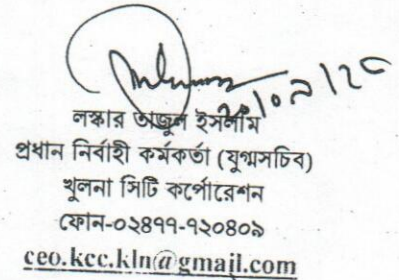 ২০/০৯/২৫
লস্কার তাজুল ইসলাম
প্রধান নির্বাহী কর্মকর্তা (যুগ্মসচিব)
খুলনা সিটি কর্পোরেশন
ফোন-০২৪৭৭-৭২০৪০৯
ceo.kcc.kln@gmail.com